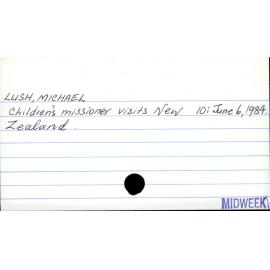 LUSH, MICHAEL
Children's missioner visits New 10: June 6, 1984.
Zealand.
MIDWEEK